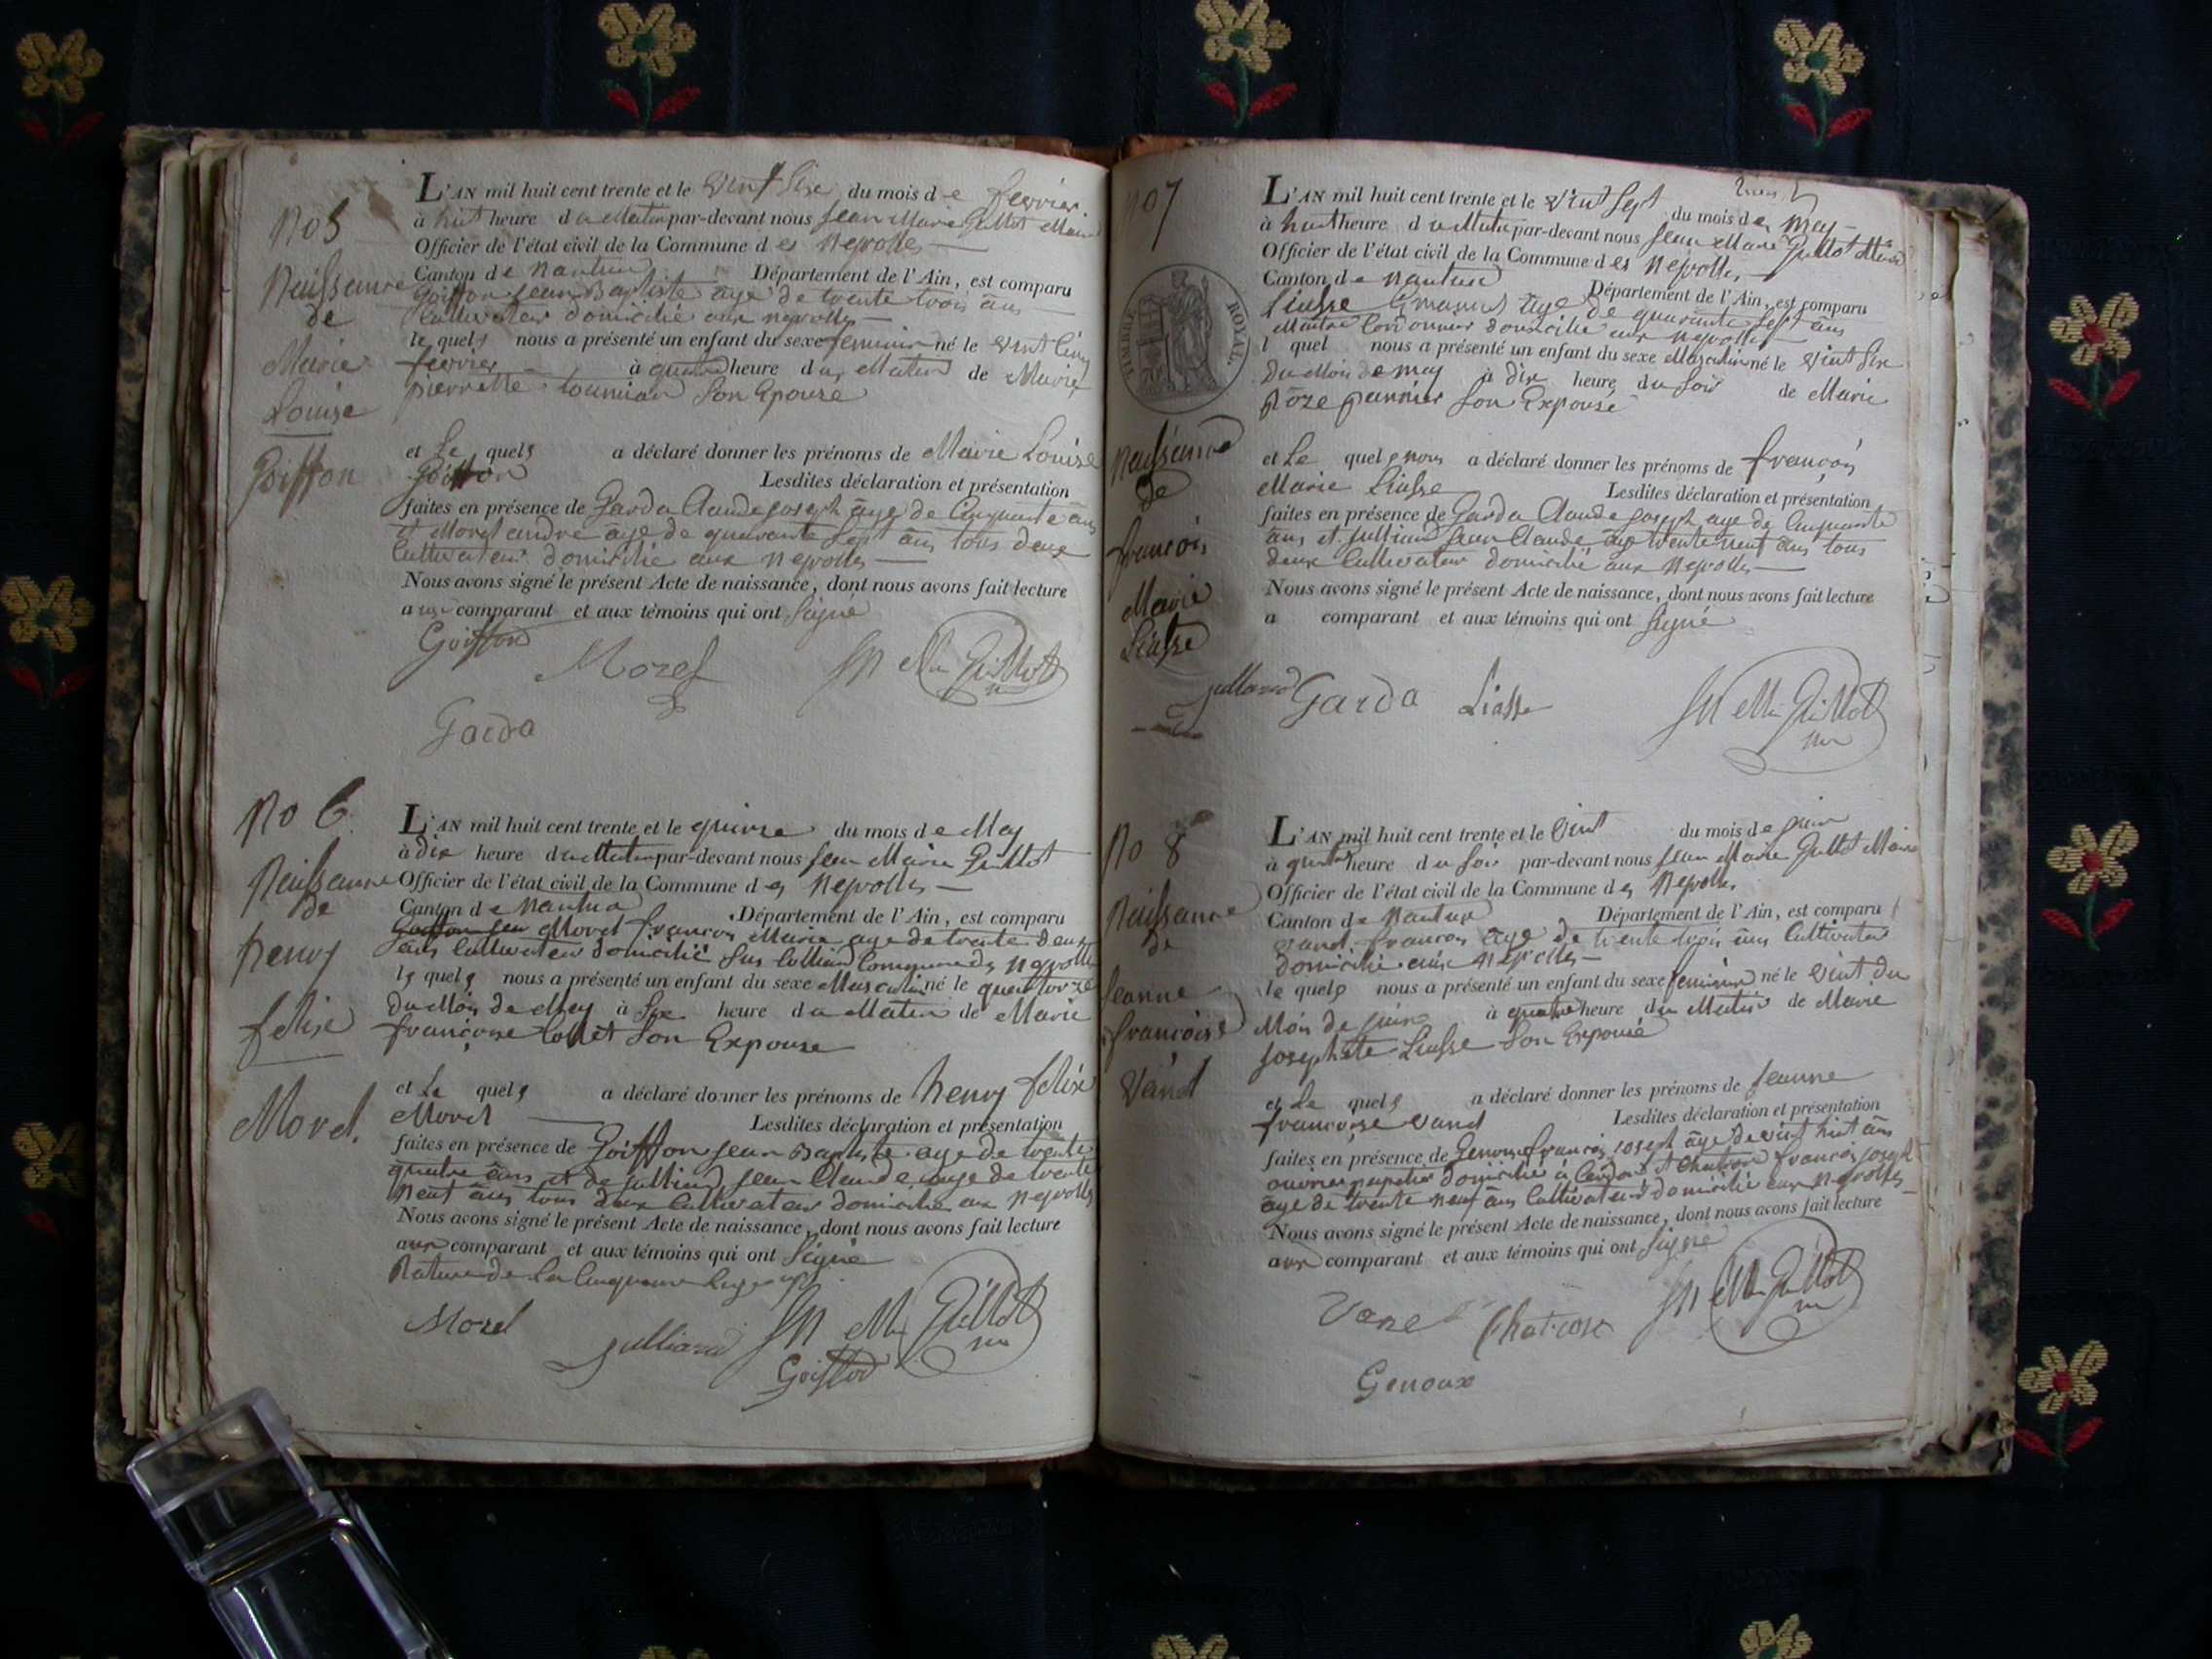 No 5
Naissance
de
Marie
Louise
Goiffon
L'AN mil huit cent trente et le vint six du mois de fevrier
à huit heure du Matin par-devant nous jean Marie Gullot Maire
Officier de l'état civil de la Commune des Neyrolles
Canton de Nantua Département de l'Ain, est comparu
Goiffon jean Baptiste âge de trente trois âns
Cultivateur domicilié aux neyrolles
le quel nous a présenté un enfant du sexe feminin né le vint cinq
fevrier à quatre heure du Matin de Marie
pierrette son Epouse
et Le quel a déclaré donner les prénoms de Marie Louise
Goiffon Lesdites déclaration et présentation
faites en présence de Garda Claude joseph âge de Cinquante âns
et Morel andré âge de quarante sept âns tous deux
Cultivateur domicilié aux Neyrolles
Nous avons signé le présent Acte de naissance, dont nous avons fait lecture
aux comparant et aux témoins qui ont signé
Goiffon
Morel
Jn Mie Gullot
Garda
No 6
Naissance
de
henry
felix
Morel.
L'AN mil huit cent trente et le quinze du mois de May
à dix heure du Matin par-devant nous jean Marie Gullot
Officier de l'état civil de la Commune des Neyrolles
Canton de Nantua Département de l'Ain, est comparu
Morel françois Marie age de trente deux
âns Cultivateur domicilié sur Commune des Neyrolles
le quel nous a présenté un enfant du sexe Masculin né le quatorze
du Mois de May à six heure du Matin de Marie
françoise Collet son Expouse
et Le quel a déclaré donner les prénoms de henry felix
Morel Lesdites déclaration et présentation
faites en présence de Goiffon jean Baptiste age de trente
quatre âns et de julliard jean Claude age de trente
neuf âns tous deux Cultivateur domicilié aux neyrolles
Nous avons signé le présent Acte de naissance, dont nous avons fait lecture
aux comparant et aux témoins qui ont signé
Morel
julliard
Jn Mie Gullot
Goiffon
No 7
TIMBRE ROYAL.
Naissance
de
françois
Marie
Liasse
L'AN mil huit cent trente et le vint sept du mois de may
à huit heure du Matin par-devant nous jean Marie Gullot Maire
Officier de l'état civil de la Commune des Neyrolles
Canton de Nantua Département de l'Ain, est comparu
Liasse âge de quarante sept âns
Maitre Cordonnier domicilié aux neyrolles
l quel nous a présenté un enfant du sexe Masculin né le vint six
du Mois de may à dix heure du soir de Marie
Roze pannier son Expouse
et Le quel nous a déclaré donner les prénoms de françois
Marie Liasse Lesdites déclaration et présentation
faites en présence de Garda Claude joseph age de Cinquante
âns et julliard jean Claude age trente neuf âns tous
deux Cultivateur domicilié aux Neyrolles
Nous avons signé le présent Acte de naissance, dont nous avons fait lecture
a comparant et aux témoins qui ont signé
julliard
Garda
Liasse
Jn Mie Gullot
No 8
Naissance
de
Jeanne
françoise
Vanel
L'AN mil huit cent trente et le vint du mois de juin
à quatre heure du soir par-devant nous jean Marie Gullot Maire
Officier de l'état civil de la Commune des Neyrolles
Canton de Nantua Département de l'Ain, est comparu
vanel françois âge de trente trois âns Cultivateur
domicilié aux Neyrolles
le quel nous a présenté un enfant du sexe feminin né le vint du
Mois de juin à quatre heure du Matin de Marie
josephte Liasse son Expouse
et Le quel a déclaré donner les prénoms de jeanne
françoise vanel Lesdites déclaration et présentation
faites en présence de Genoux françois joseph âge de vint huit âns
ouvrier papetier domicilié à Cerdon et Chatron françois joseph
âge de trente neuf âns Cultivateur domicilié aux Neyrolles
Nous avons signé le présent Acte de naissance, dont nous avons fait lecture
aux comparant et aux témoins qui ont signé
Vanel
Chatron
Jn Mie Gullot
Genoux